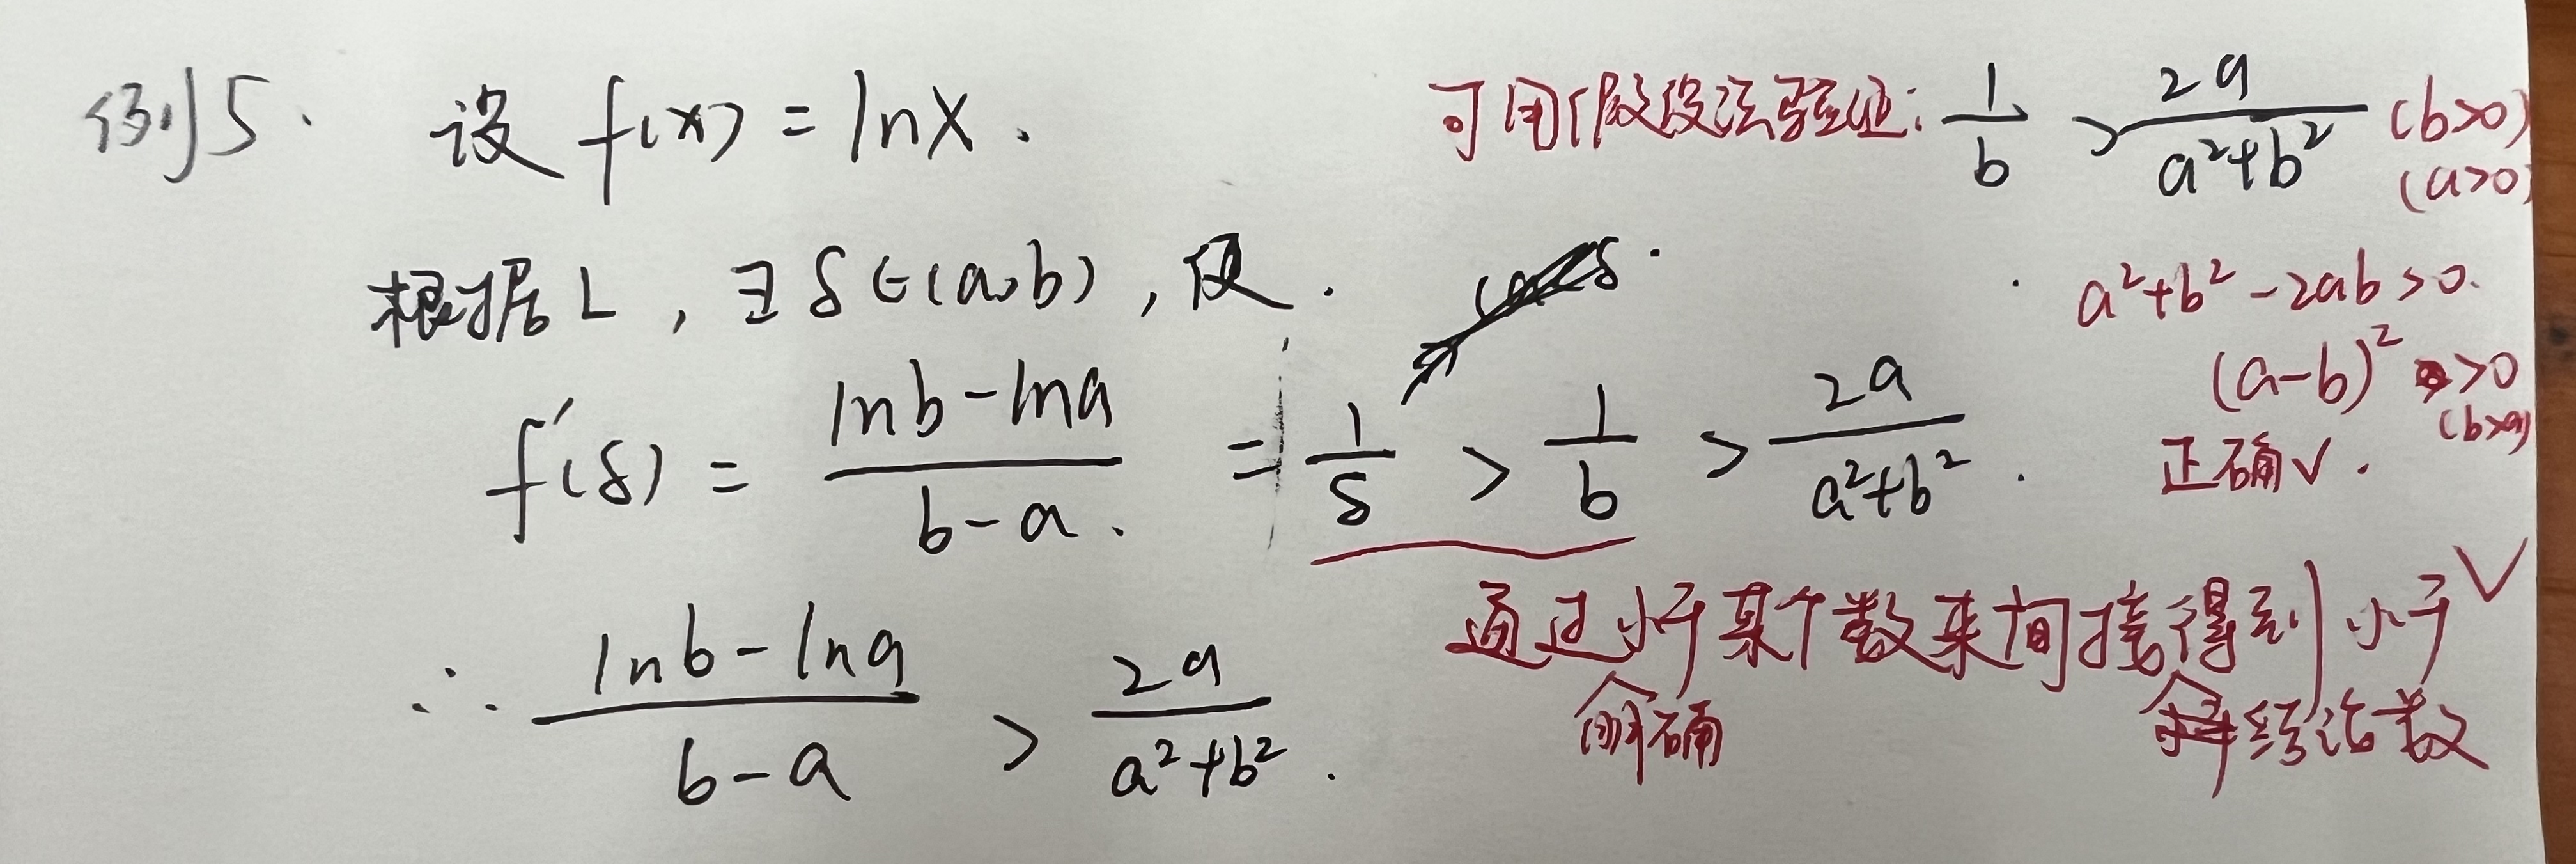 例5. 设 f(x) = lnx.
根据L, ∃ δ∈(a,b), 使.
f'(δ) = \frac{lnb-lna}{b-a} = \frac{1}{δ} > \frac{1}{b} > \frac{2a}{a²+b²}.
∴ \frac{lnb-lna}{b-a} > \frac{2a}{a²+b²}.
可用假设法验证: \frac{1}{b} > \frac{2a}{a²+b²} (b>0)
(a>0)
a²+b²-2ab>0.
(a-b)² >0
(b>a)
正确√.
通过小于某个数来间接得到小于√
明确
结论数